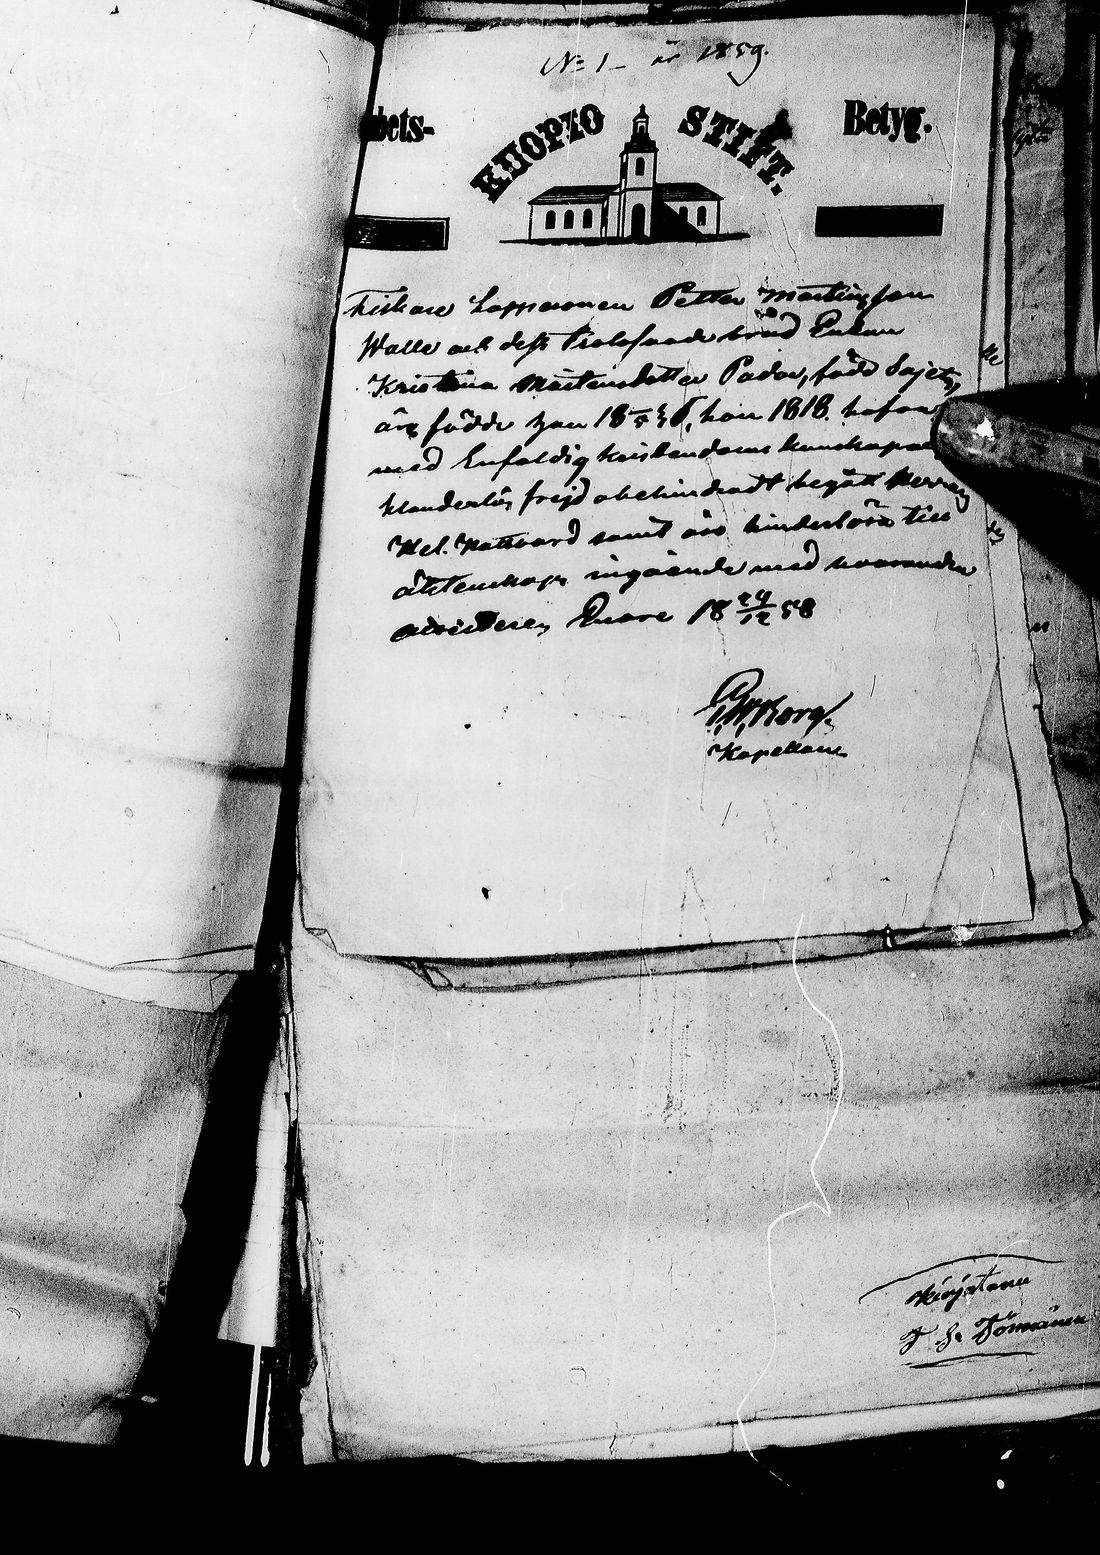 № 1 år 1859.
bets-
KUOPIO STIFT.
Betyg.
Fiskare Lappmannen Petter Mårtensson
Walle och dess trolofvade brud Enkan
Kristina Mårtensdotter Padar, född Sajets,
äro födde han 18 36, hon 1818. hafva
med Enfaldig kristendoms kunskap
klanderlös frejd obehindradt begått Herrans
Hel. Nattvard samt äro hinderlösa till
äktenskaps ingående med varandra
Enare 18 29/12 58
Borg.
Kapellan
Kirjottanu
Törmänen